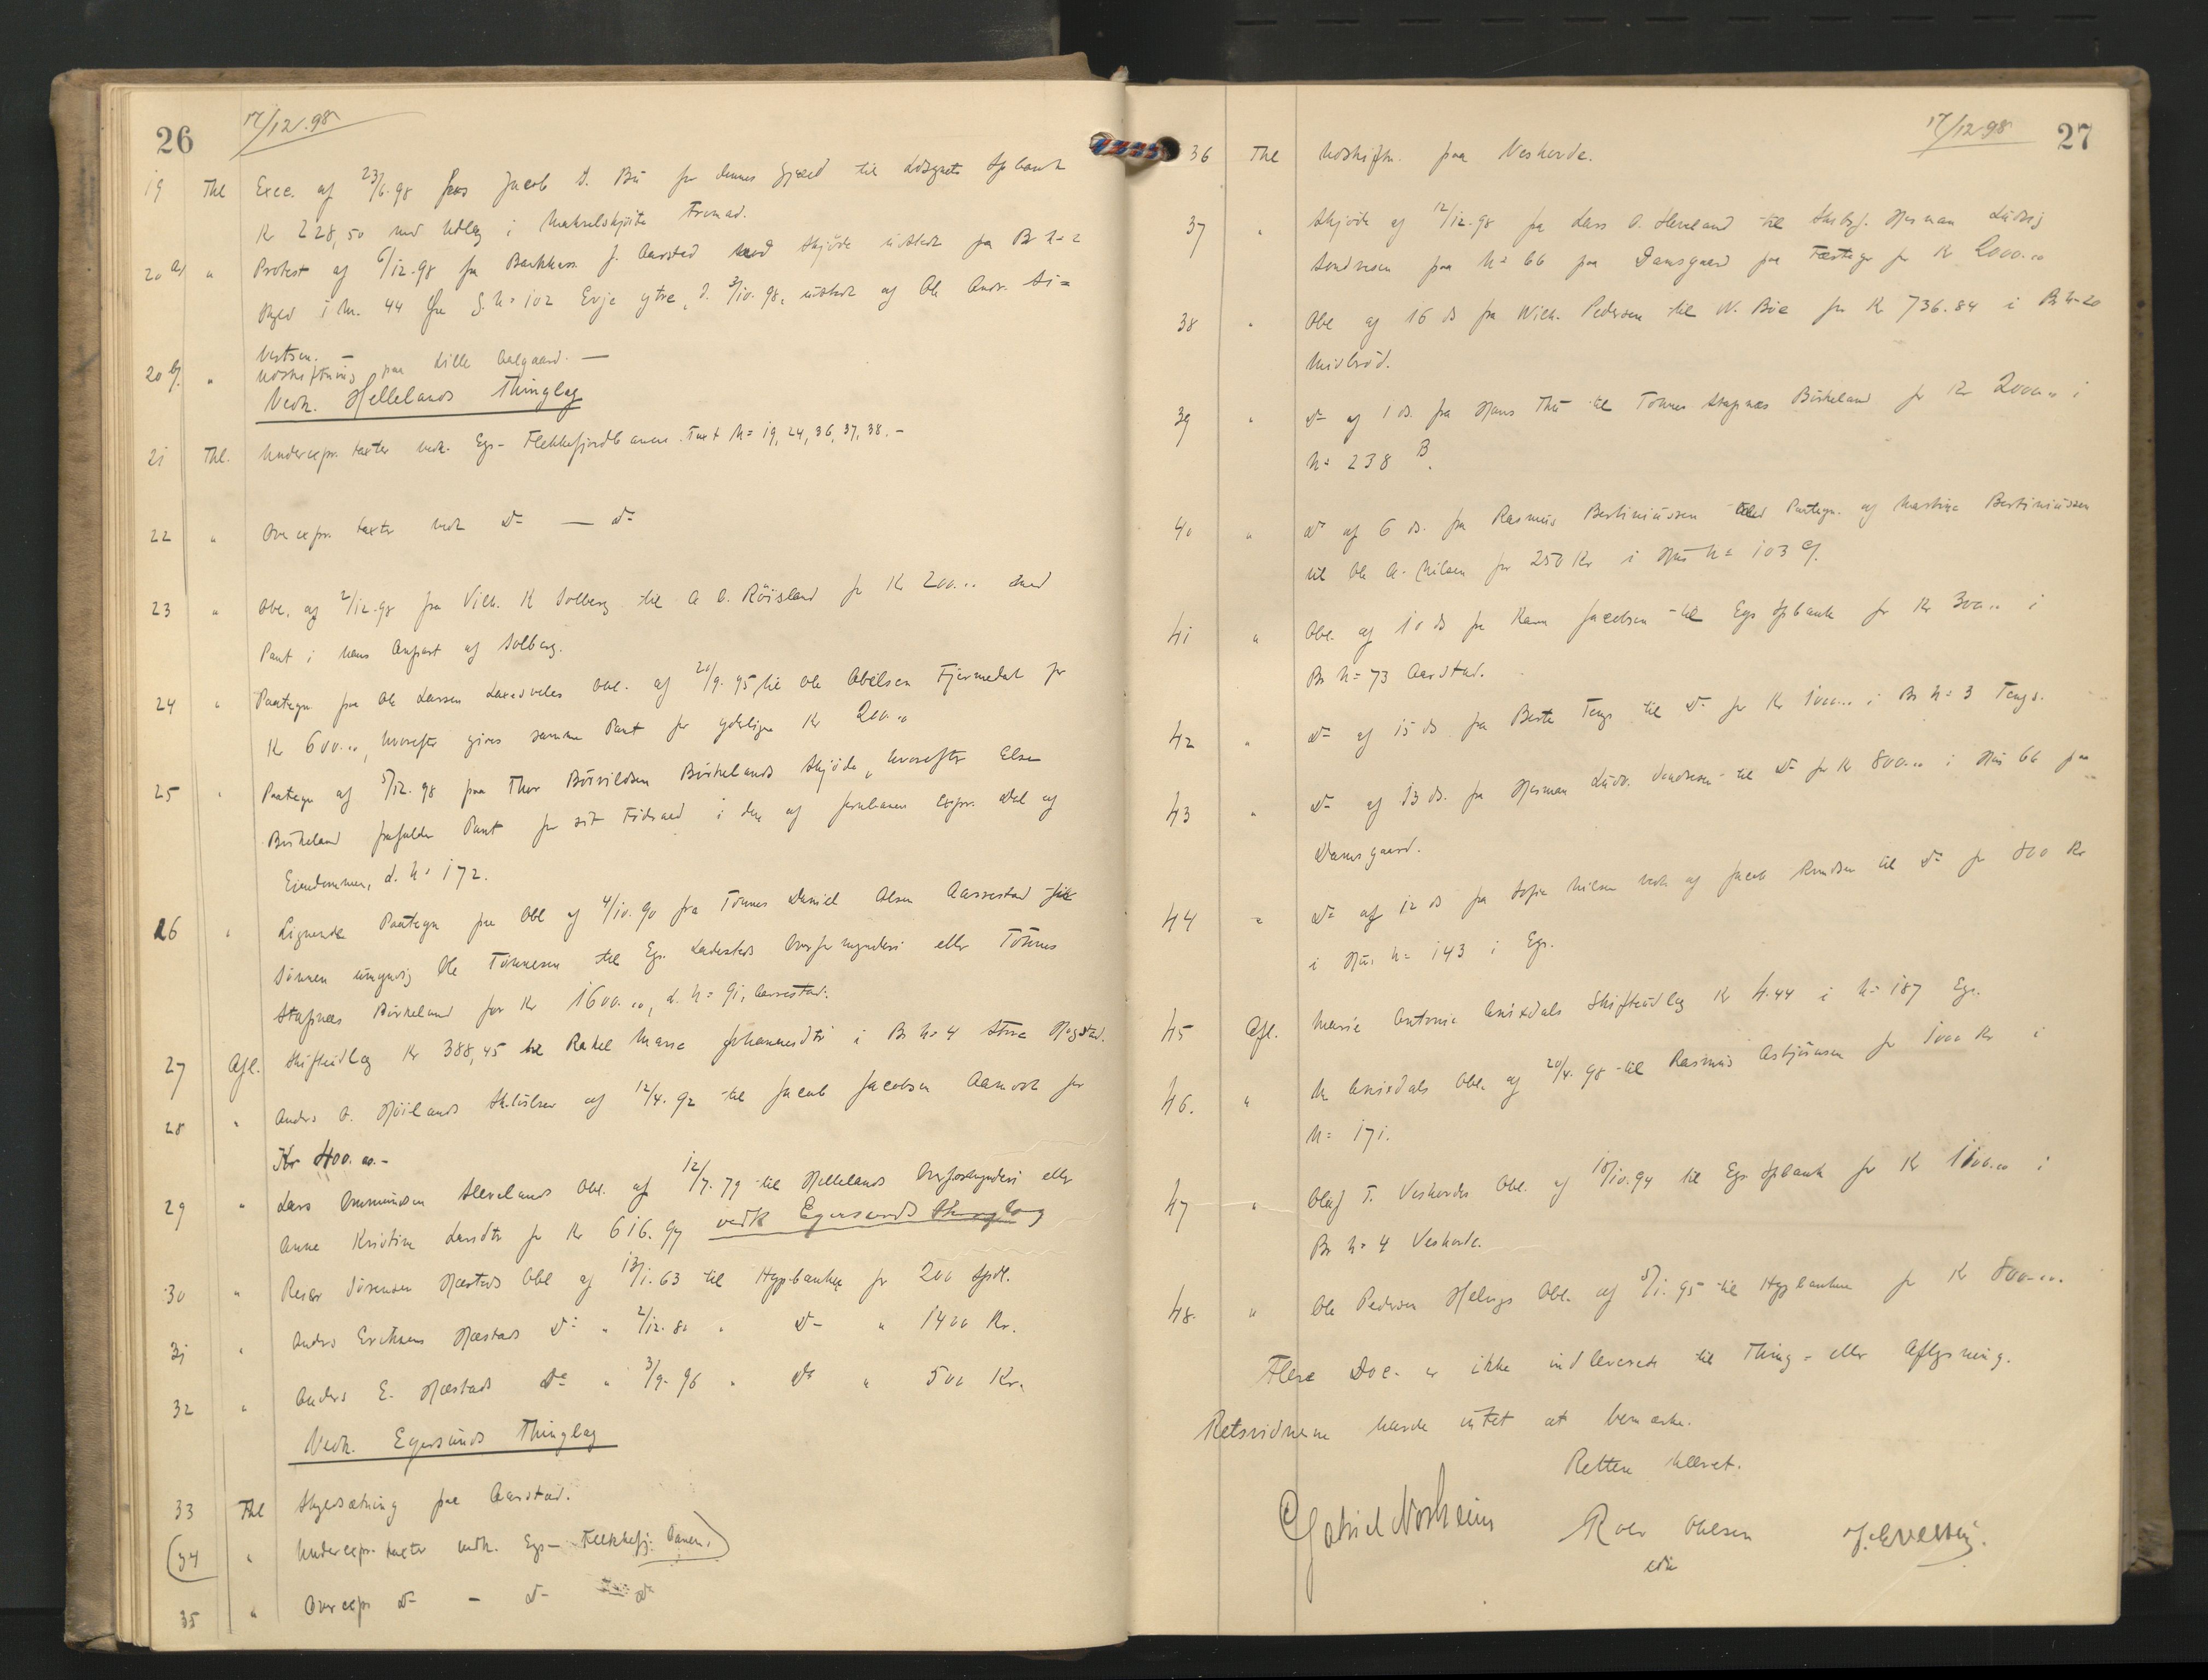 26 17/12.98
19 Thl Exec. af 23/6.98 hos Jacob S. Bu for dennes Gjæld til Sogndals Spbank
Kr 228,50 med Udlæg i Makrelskøite Fremad.
20 a) " Protest af 6/12.98 fra Bankkass. J. Aarstad mod Skjøde udstedt paa Br N= 2
Byed i M. 44 fra G.N= 102 Evje ytre, d. 3/10.98, udstedt af Ole Andr. Si=
vertsen. —
20 b) " Udskiftning paa Lille Aalgaard. —
Vedk. Hellelands Thinglag
21 Thl. Underexpr. taxter vedk. Egs-Flekkefjordbanen. Taxt N= 19, 24, 36, 37, 38. -
22 " Overexpr. taxter vedk D= — D=
23 " Obl. af 2/12.98 fra Vilh. K Solberg til A O. Röisland for Kr 200.. mod
Pant i hans Anpart af Solberg.
24 " Paategn paa Ole Larsen Laxesveles Obl. af 20/9.95 til Ole Abelsen Fjermedal for
Kr 600.00, hvorefter gives samme Pant for yderligere Kr 200.00
25 " Paategn af 5/12.98 paa Thor Börildsen Birkelands Skjöde, hvorefter Else
Birkeland frafalder Pant for sit Födraad i den af Jernbanen expr. Del af
Eiendommen, d. N= 172.
26 " Lignende Paategn paa Obl af 4/10.90 fra Tönnes Daniel Olsen Aarrestad
Sönnen umyndig Ole Tönnesen til Egs. Ladesteds Overformynderi eller Tönnes
Stapnes Birkeland for Kr 1600.00, d. N= 91, Aarrestad.
27 Afl. Skifteudlæg Kr 388,45 til Rakel Marie Johannesdtr i Br N= 4 Store Myglstad.
28 " Anders O. Höilands Skbrev af 12/4.92 til Jacob Jacobsen Aamodt for
Kr 400.00.-
29 " Lars Ommundsen Slevelands Obl. af 12/7.79 til Hellelands Overformynderi eller
Anne Kristine Larsdtr for Kr 616.94 vedk Egersunds Thinglag
30 " Reier Sörensen Mæstads Obl af 13/1.63 til Hyp.banken for 200 Spdl.
31 " Anders Eriksens Mæstads D= " 2/12.80 " D= " 1400 Kr.
32 " Anders E. Mæstads D= " 3/9.96 " D= " 500 Kr.
Vedk. Egersunds Thinglag
33 Thl Skyldsætning paa Aarstad.
(34 " Underexpr. taxter vedk. Egs-Flekkefj. Banen.)
35 " Overexpr D= - D= D=
17/12-98 27
36 Thl Udskiftn. paa Veshovde.
37 " Skjöde af 12/12.98 fra Lars O. Sleveland til Skibsf. Herman Ludvig
Sondresen paa N= 66 paa Damsgaard paa Fæstegr for Kr 2000.00
38 " Obl af 16 ds fra Wilh. Pedersen til N. Böe for Kr 736.84 i Br N= 20
Midbröd.
39 " D= af 1 ds. fra Hans Thu til Tönnes Stapnæs Birkeland for Kr 2000.. i
N= 238 B.
40 " D= af 6 ds. fra Rasmus Bertiniussen med Paategn. af Martine Bertiniussen
til Ole A. Nilsen for 250 Kr i Hus N= 103 c/.
41 " Obl. af 10 ds fra Karen Jacobsen til Egs Spbank for Kr 300.. i
Br N= 73 Aarstad.
42 " D= af 15 ds. fra Berte Tengs til D= for Kr 1000... i Br N= 3 Tengs.
43 " D= af 13 ds. fra Herman Ludv. Sondresen til D= for Kr 800.00 i Hus 66 paa
Damsgaard.
44 " D= af 12 ds fra Sofie Nilsen vedt af Jacob Knudsen til D= for 800 Kr
i Hus. N= 143 i Egs.
45 Afl. Marie Antonie Anixdals Skifteudlæg Kr 4.44 i N= 187 Egs.
46. " M Anixdals Obl. af 20/4.98 til Rasmus Asbjörnsen for 1000 Kr i
N= 171.
47 " Olaf T. Veshovdes Obl. af 18/10.94 til Egs Spbank for Kr 1100.00 i
Br N= 4 Veshovde.
48. " Ole Pedersen Helvigs Obl. af 5/1.95 til Hypbanken for Kr 800-00.
Flere Doc. er ikke indleverede til Thing- eller Aflysning.
Retsvidnerne havde intet at bemærke.
Retten hævet.
Gabriel Nordheim Roar Ohlsen
edv